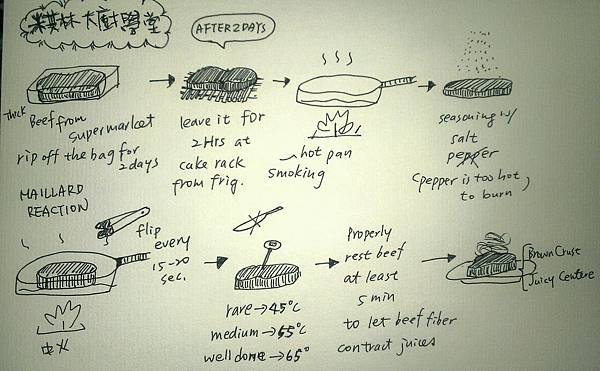 米其林大廚學堂
AFTER 2 DAYS
thick Beef from
supermarket
rip off the bag for
2 days
leave it for
2 Hrs at
cake rack
from frig.
hot pan
smoking
seasoning w/
salt
pepper
(pepper is too hot
to burn)
MAILLARD
REACTION
flip
every
15-20
sec.
中火
rare→45°C
medium→55°C
well done→65°
Properly
rest beef
at least
5 min
to let beef fiber
contract juices
Brown Crust
Juicy Centure